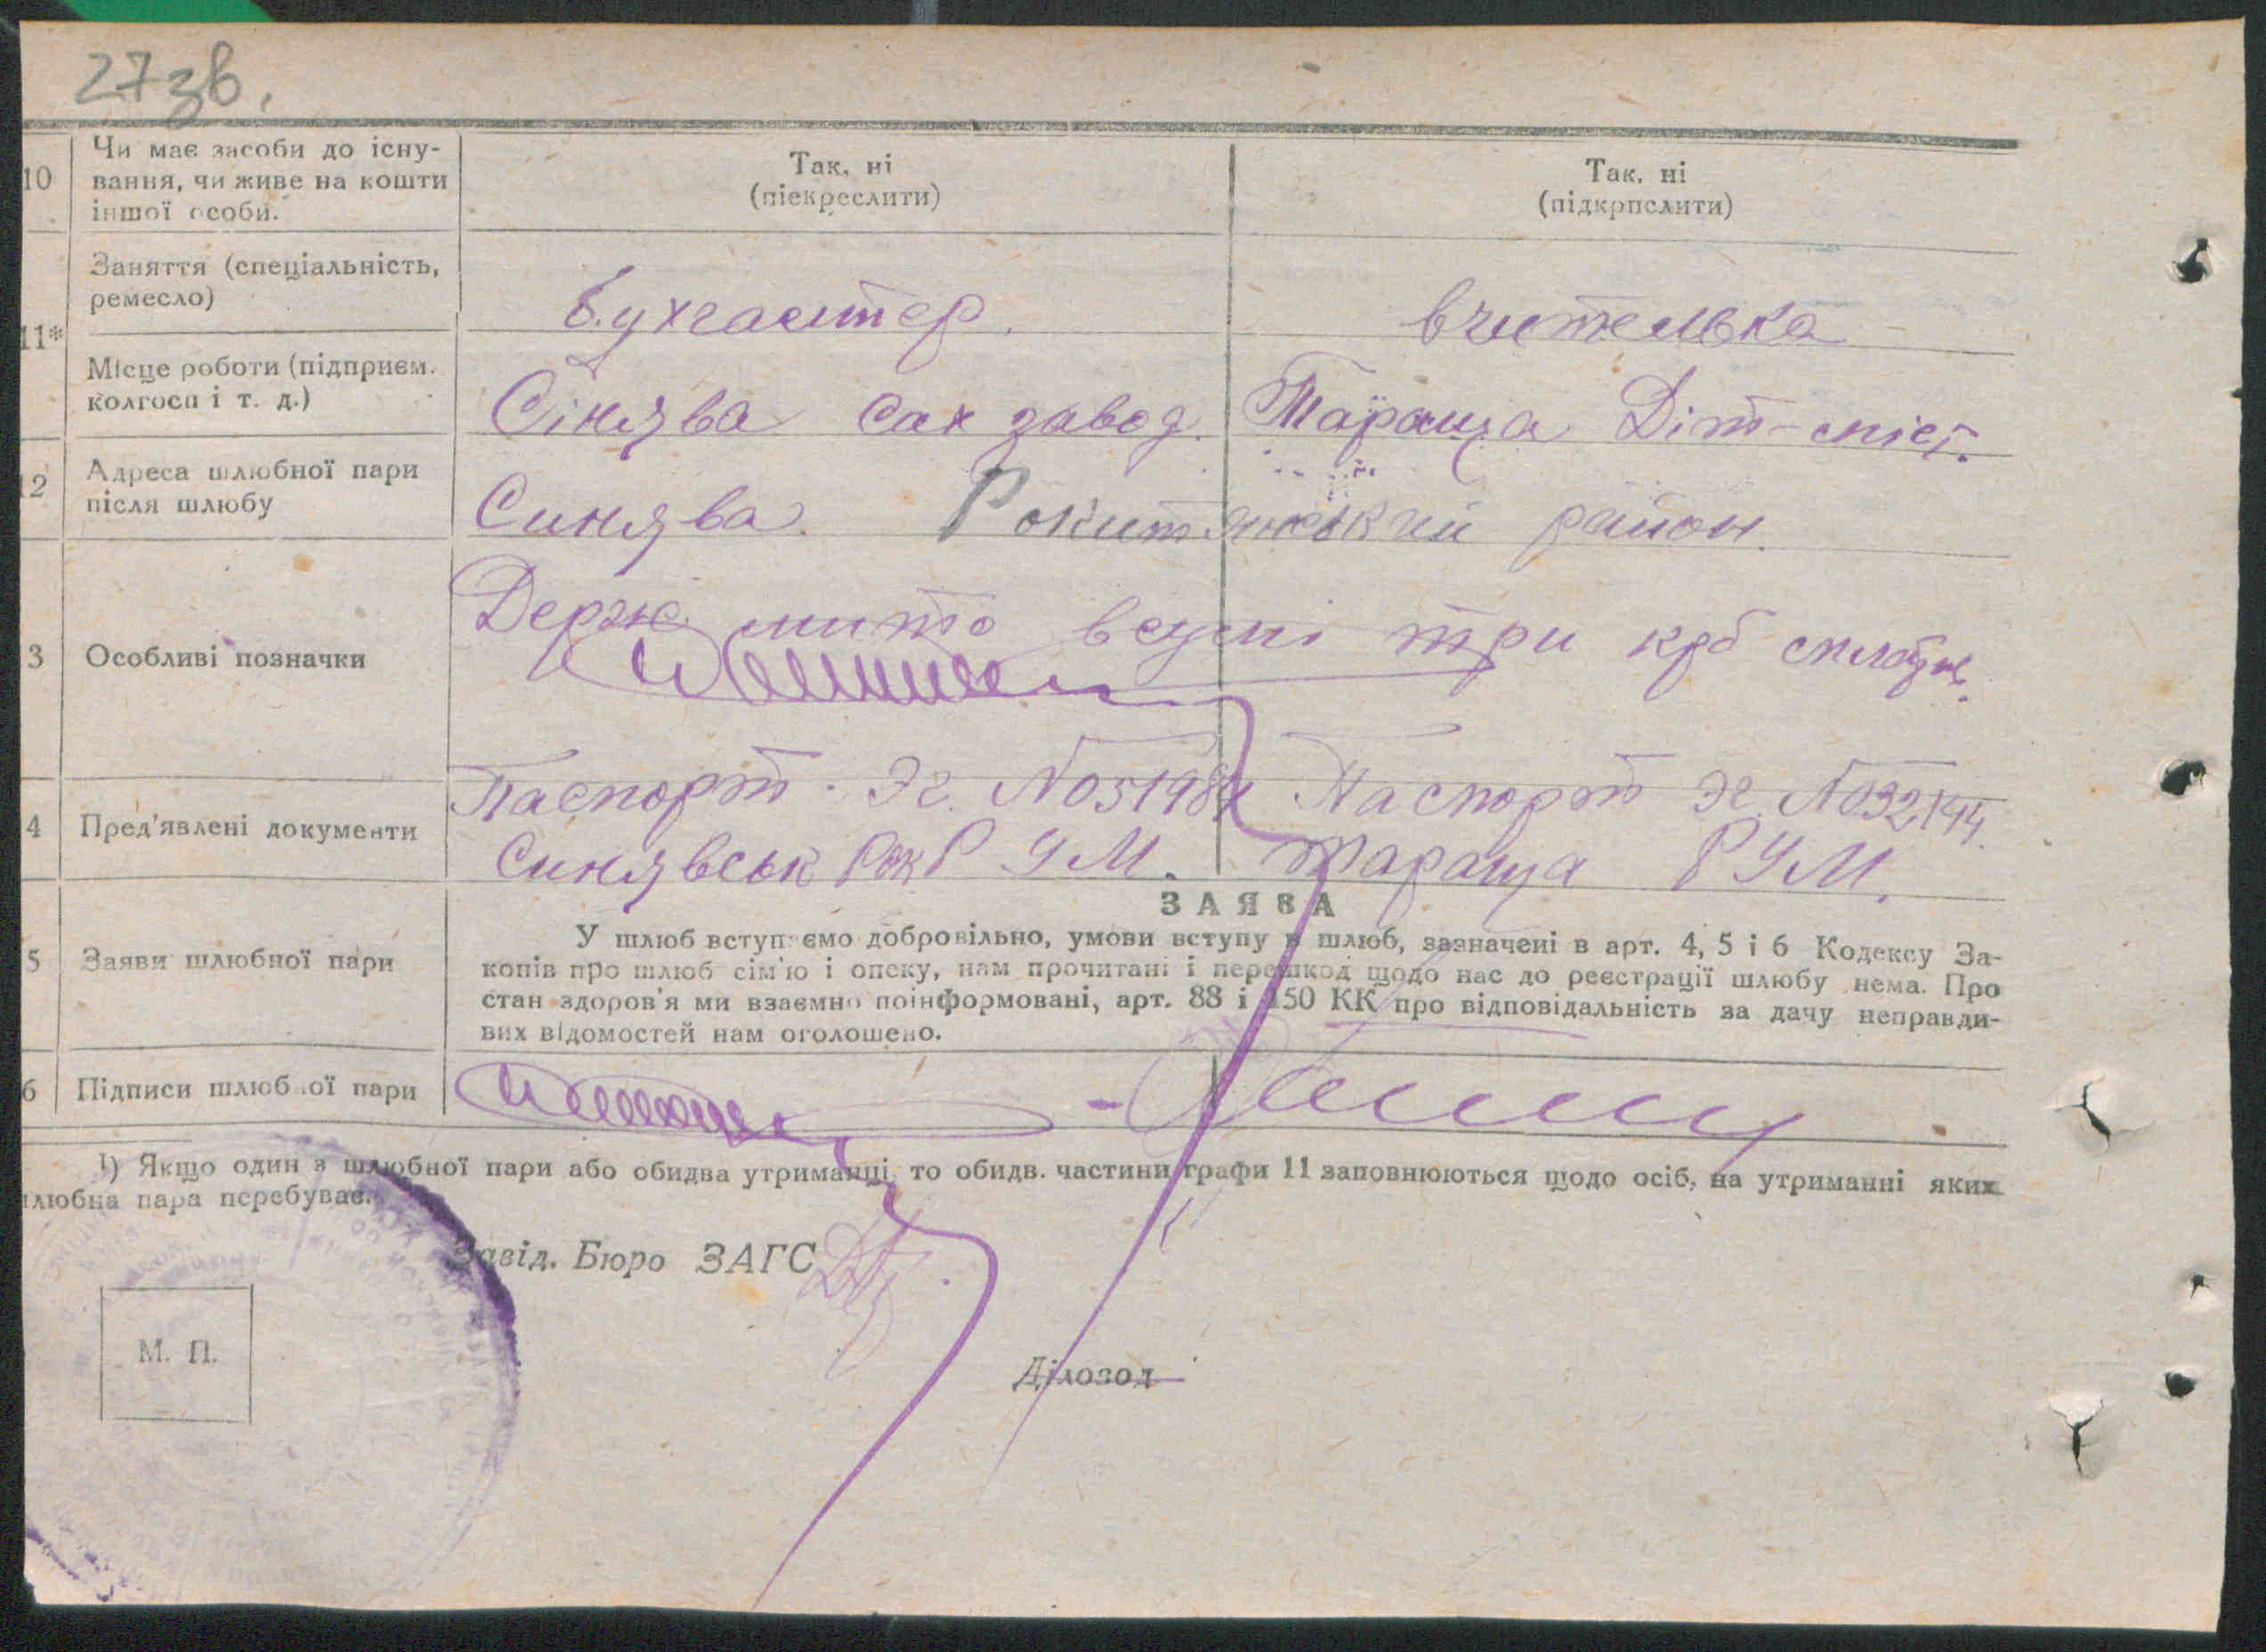 27зв.
10
Чи має засоби до існу-
вання, чи живе на кошти
іншої особи.
Так, ні
(піекреслити)
Так, ні
(підкрпслити)
11*
Заняття (спеціальність,
ремесло)
бухгалтер.
вчителька
Місце роботи (підприєм.
колгосп і т. д.)
Сінява Сах завод.
Тараща Діт-міст.
2
Адреса шлюбної пари
після шлюбу
Синява. Рокитянський район.
3
Особливі позначки
Держ мито в сумі три крб сплачн.
4
Пред'явлені документи
Паспорт. Эг. №05198
Синявськ Рок Р У М.
Паспорт Эг. №032144.
Тараща Р У М.
5
Заяви шлюбної пари
ЗАЯВА
У шлюб вступаємо добровільно, умови вступу в шлюб, зазначені в арт. 4, 5 і 6 Кодексу За-
копів про шлюб сім'ю і опеку, нам прочитані і перешкод щодо нас до реєстрації шлюбу нема. Про
стан здоров'я ми взаємно поінформовані, арт. 88 і 150 КК про відповідальність за дачу неправди-
вих відомостей нам оголошено.
6
Підписи шлюб ої пари
1) Якщо один з шлюбної пари або обидва утриманці, то обидв. частини графи 11 заповнюються щодо осіб, на утриманні яких
шлюбна пара перебуває.
Завід. Бюро ЗАГС
М. П.
Діловод